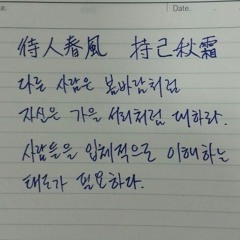 Date.
待人春風 持己秋霜
다른 사람은 봄바람처럼
자신은 가을 서리처럼 대하라.
사람들을 입체적으로 이해하는
태도가 필요하다.